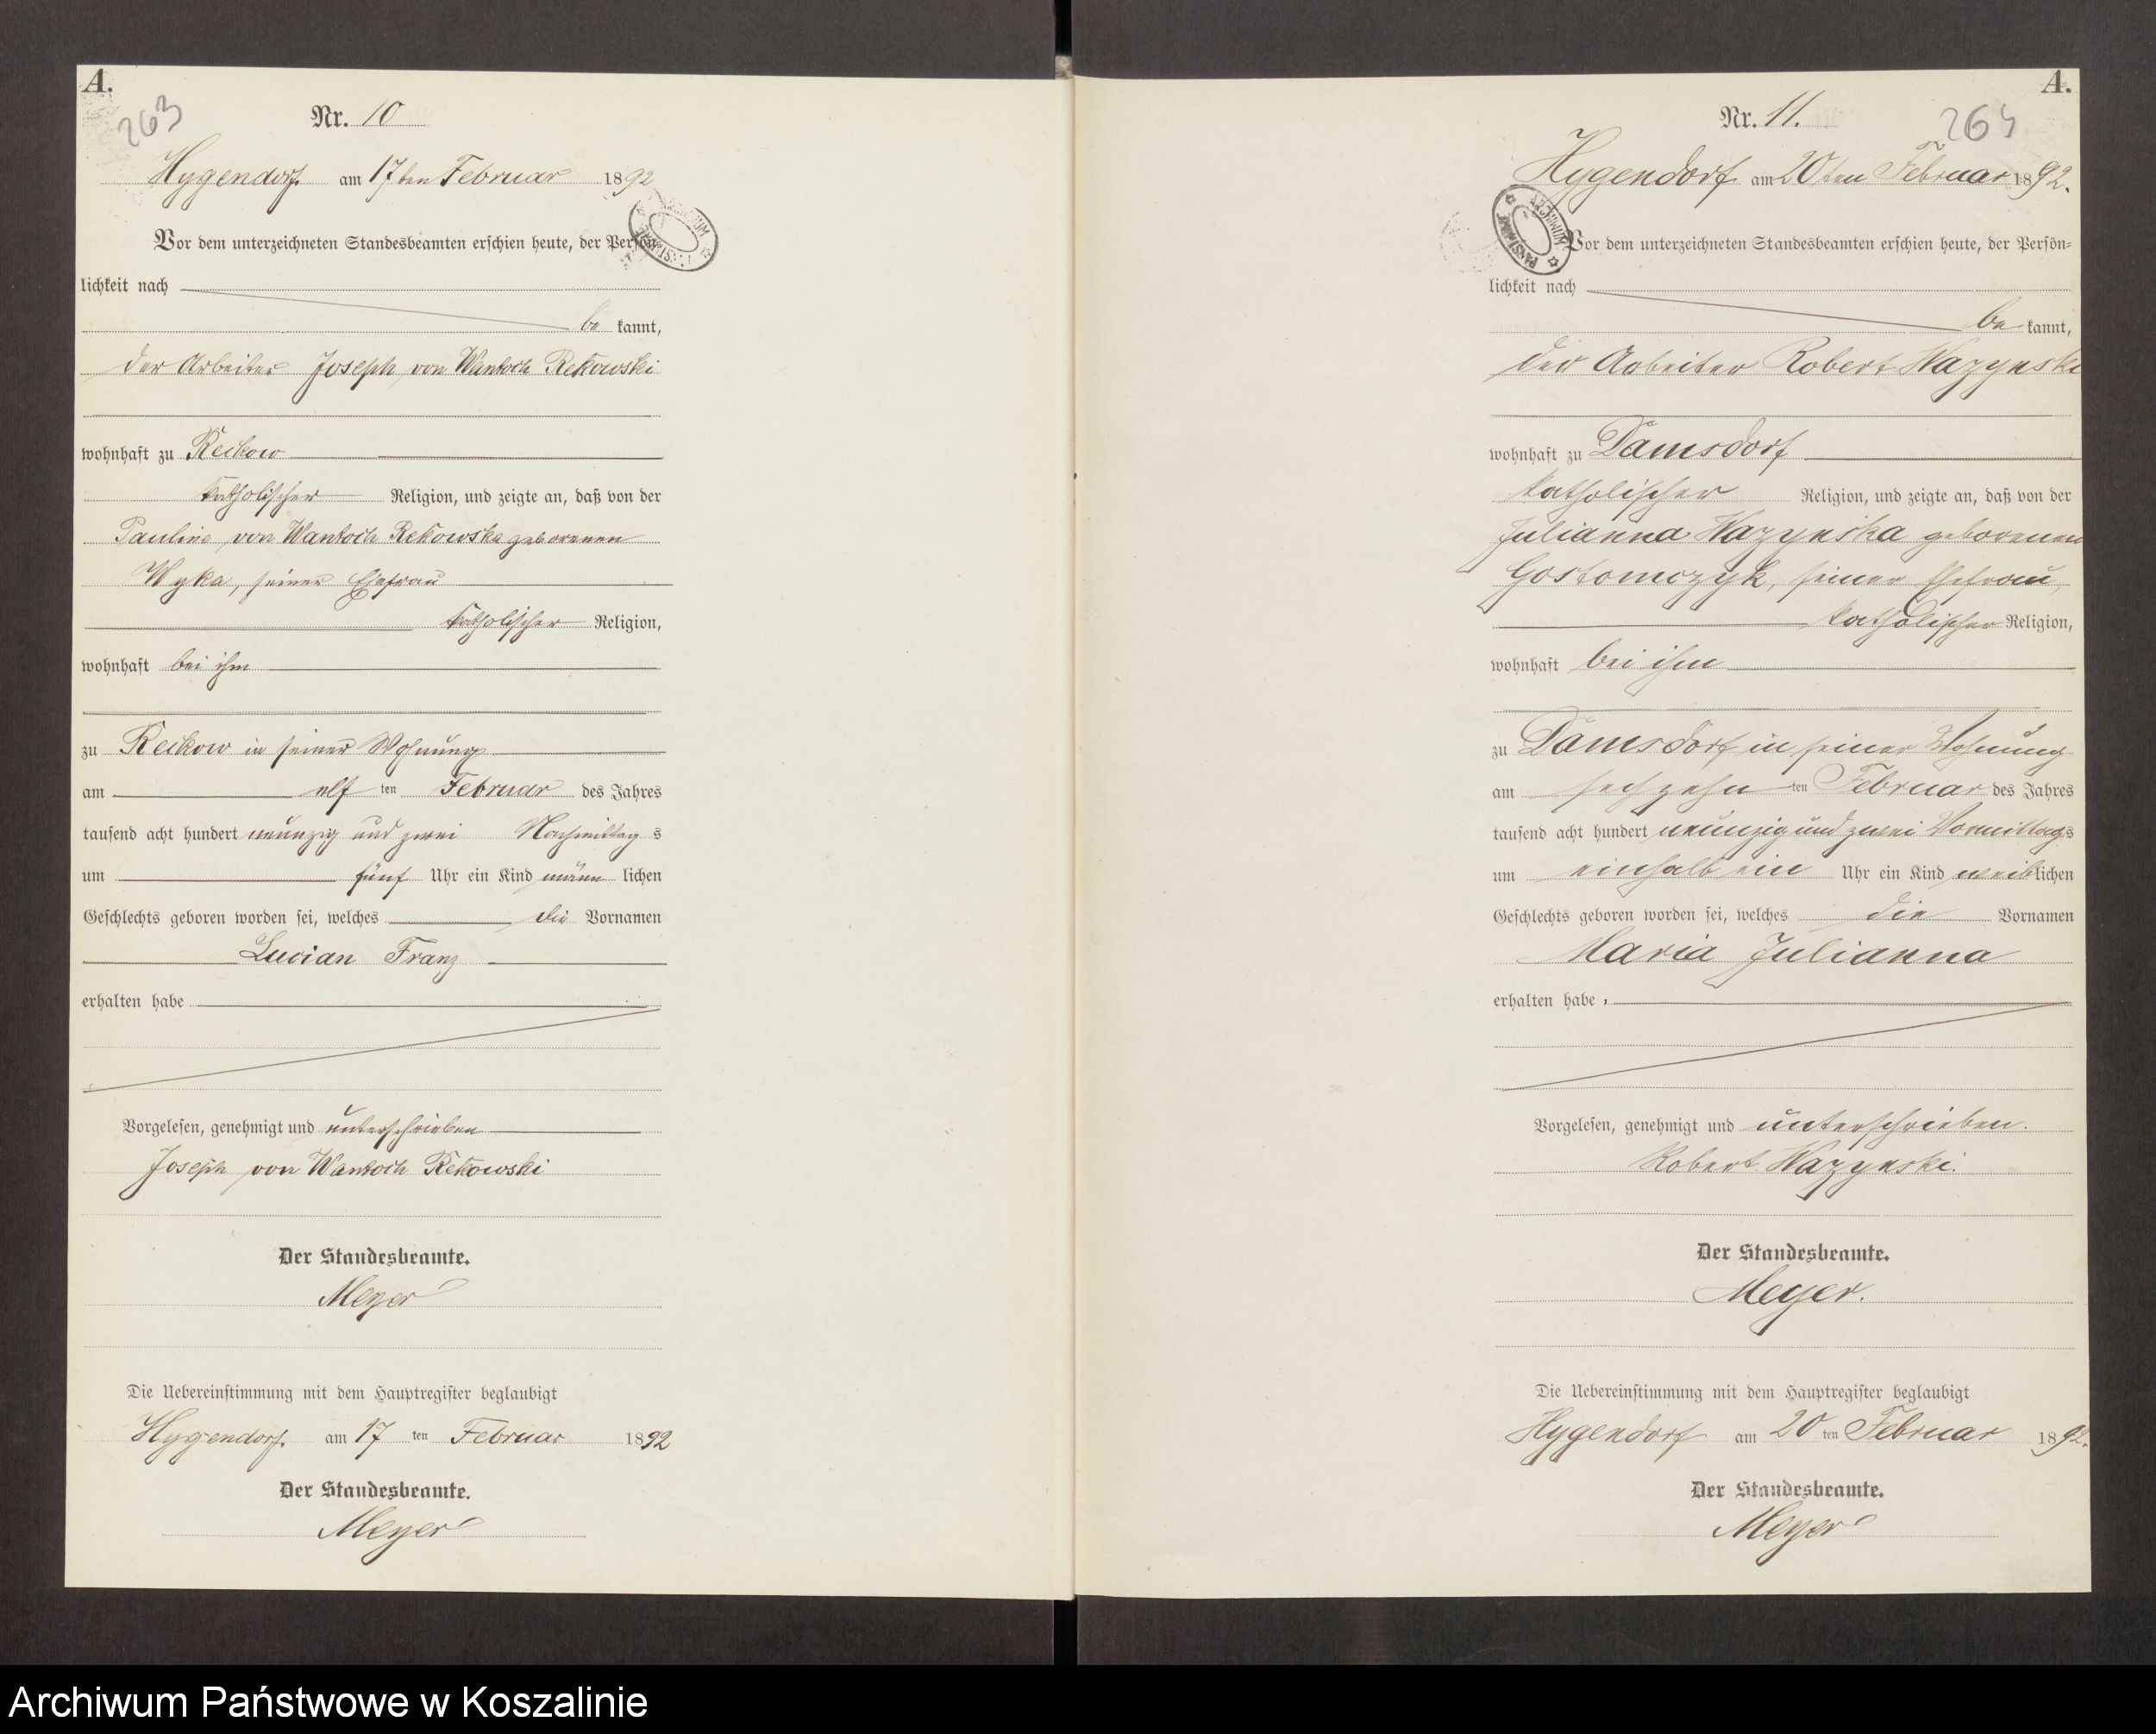 A.
263
Nr. 10
Hygendorf am 17ten Februar 1892
Vor dem unterzeichneten Standesbeamten erschien heute, der Persön-
lichkeit nach
be kannt,
der Arbeiter Joseph von Wantoch Rekowski
wohnhaft zu Reckow
katholischer Religion, und zeigte an, daß von der
Pauline von Wantoch Rekowska geborenen
Wyka, seiner Ehefrau
katholischer Religion,
wohnhaft bei ihm
zu Reckow in seiner Wohnung
am elf ten Februar des Jahres
tausend acht hundert neunzig und zwei Nachmittag s
um fünf Uhr ein Kind männ lichen
Geschlechts geboren worden sei, welches die Vornamen
Lucian Franz
erhalten habe
Vorgelesen, genehmigt und unterschrieben
Joseph von Wantoch Rekowski
Der Standesbeamte.
Meyer
Die Uebereinstimmung mit dem Hauptregister beglaubigt
Hygendorf am 17 ten Februar 1892
Der Standesbeamte.
Meyer
A.
Nr. 11.
Hygendorf am 20ten Februar 1892.
Vor dem unterzeichneten Standesbeamten erschien heute, der Persön-
lichkeit nach
be kannt,
der Arbeiter Robert Wazynski
wohnhaft zu Damsdorf
katholischer Religion, und zeigte an, daß von der
Julianna Wazynska geborenen
Gostomczyk, seiner Ehefrau,
katholischer Religion,
wohnhaft bei ihm
zu Damsdorf in seiner Wohnung
am sechzehn ten Februar des Jahres
tausend acht hundert neunzig und zwei Vormittags
um einhalb ein Uhr ein Kind weiblichen
Geschlechts geboren worden sei, welches die Vornamen
Maria Julianna
erhalten habe.
Vorgelesen, genehmigt und unterschrieben.
Robert Wazynski.
Der Standesbeamte.
Meyer.
Die Uebereinstimmung mit dem Hauptregister beglaubigt
Hygendorf am 20 ten Februar 1892.
Der Standesbeamte.
Meyer
Archiwum Państwowe w Koszalinie